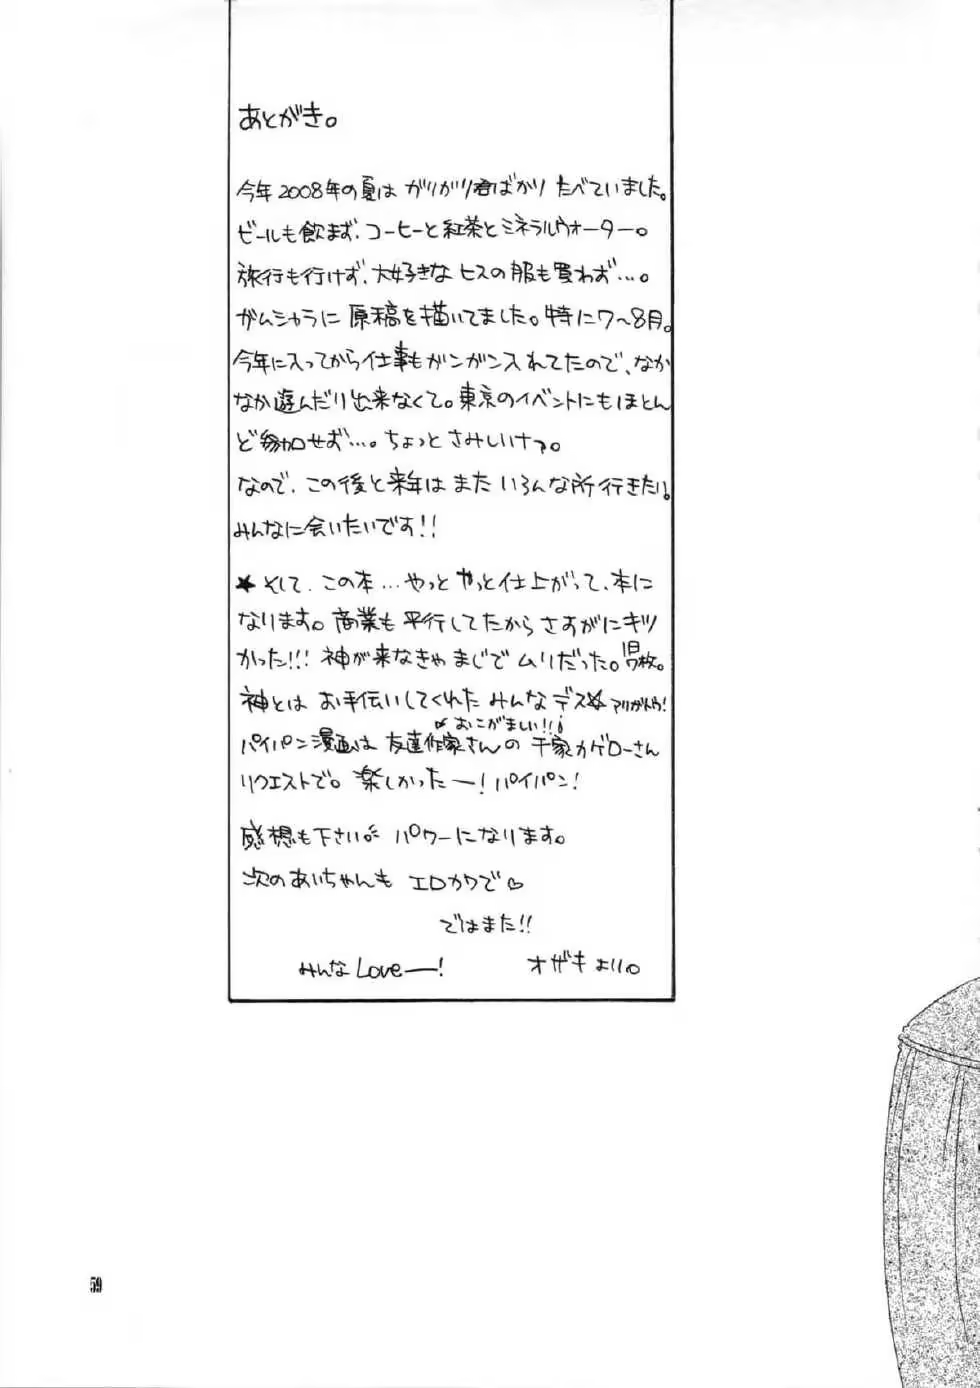 あとがき。
今年2008年の夏は ガリガリ君ばかり たべていました。
ビールも飲まず、コーヒーと紅茶とミネラルウォーター。
旅行も行けず、大好きな ヒスの服も買わず…。
ガムシャラに 原稿を描いてました。特に7〜8月。
今年に入ってから仕事もガンガン入れてたので、なか
なか遊んだり出来なくて。東京のイベントにもほとん
ど参加せず…。ちょっと さみしいナァ。
なので、この後と来年は また いろんな所行きたい。
みんなに会いたいです!!
★そして、この本…やっと やっと仕上がって、本に
なります。商業も 平行してたから さすがにキツ
かった!!! 神が来なきゃ まじで ムリだった。1日7枚。
神とは お手伝いしてくれた みんなデス☆ アリガトウ!
おこがましい!!
パイパン漫画は 友達作家さんの 千家カゲローさん
リクエストで。楽しかったー! パイパン!
感想も下さい パワーになります。
次のあいちゃんも エロカワで♡
ではまた!!
みんな Love ー! オザキより。
59